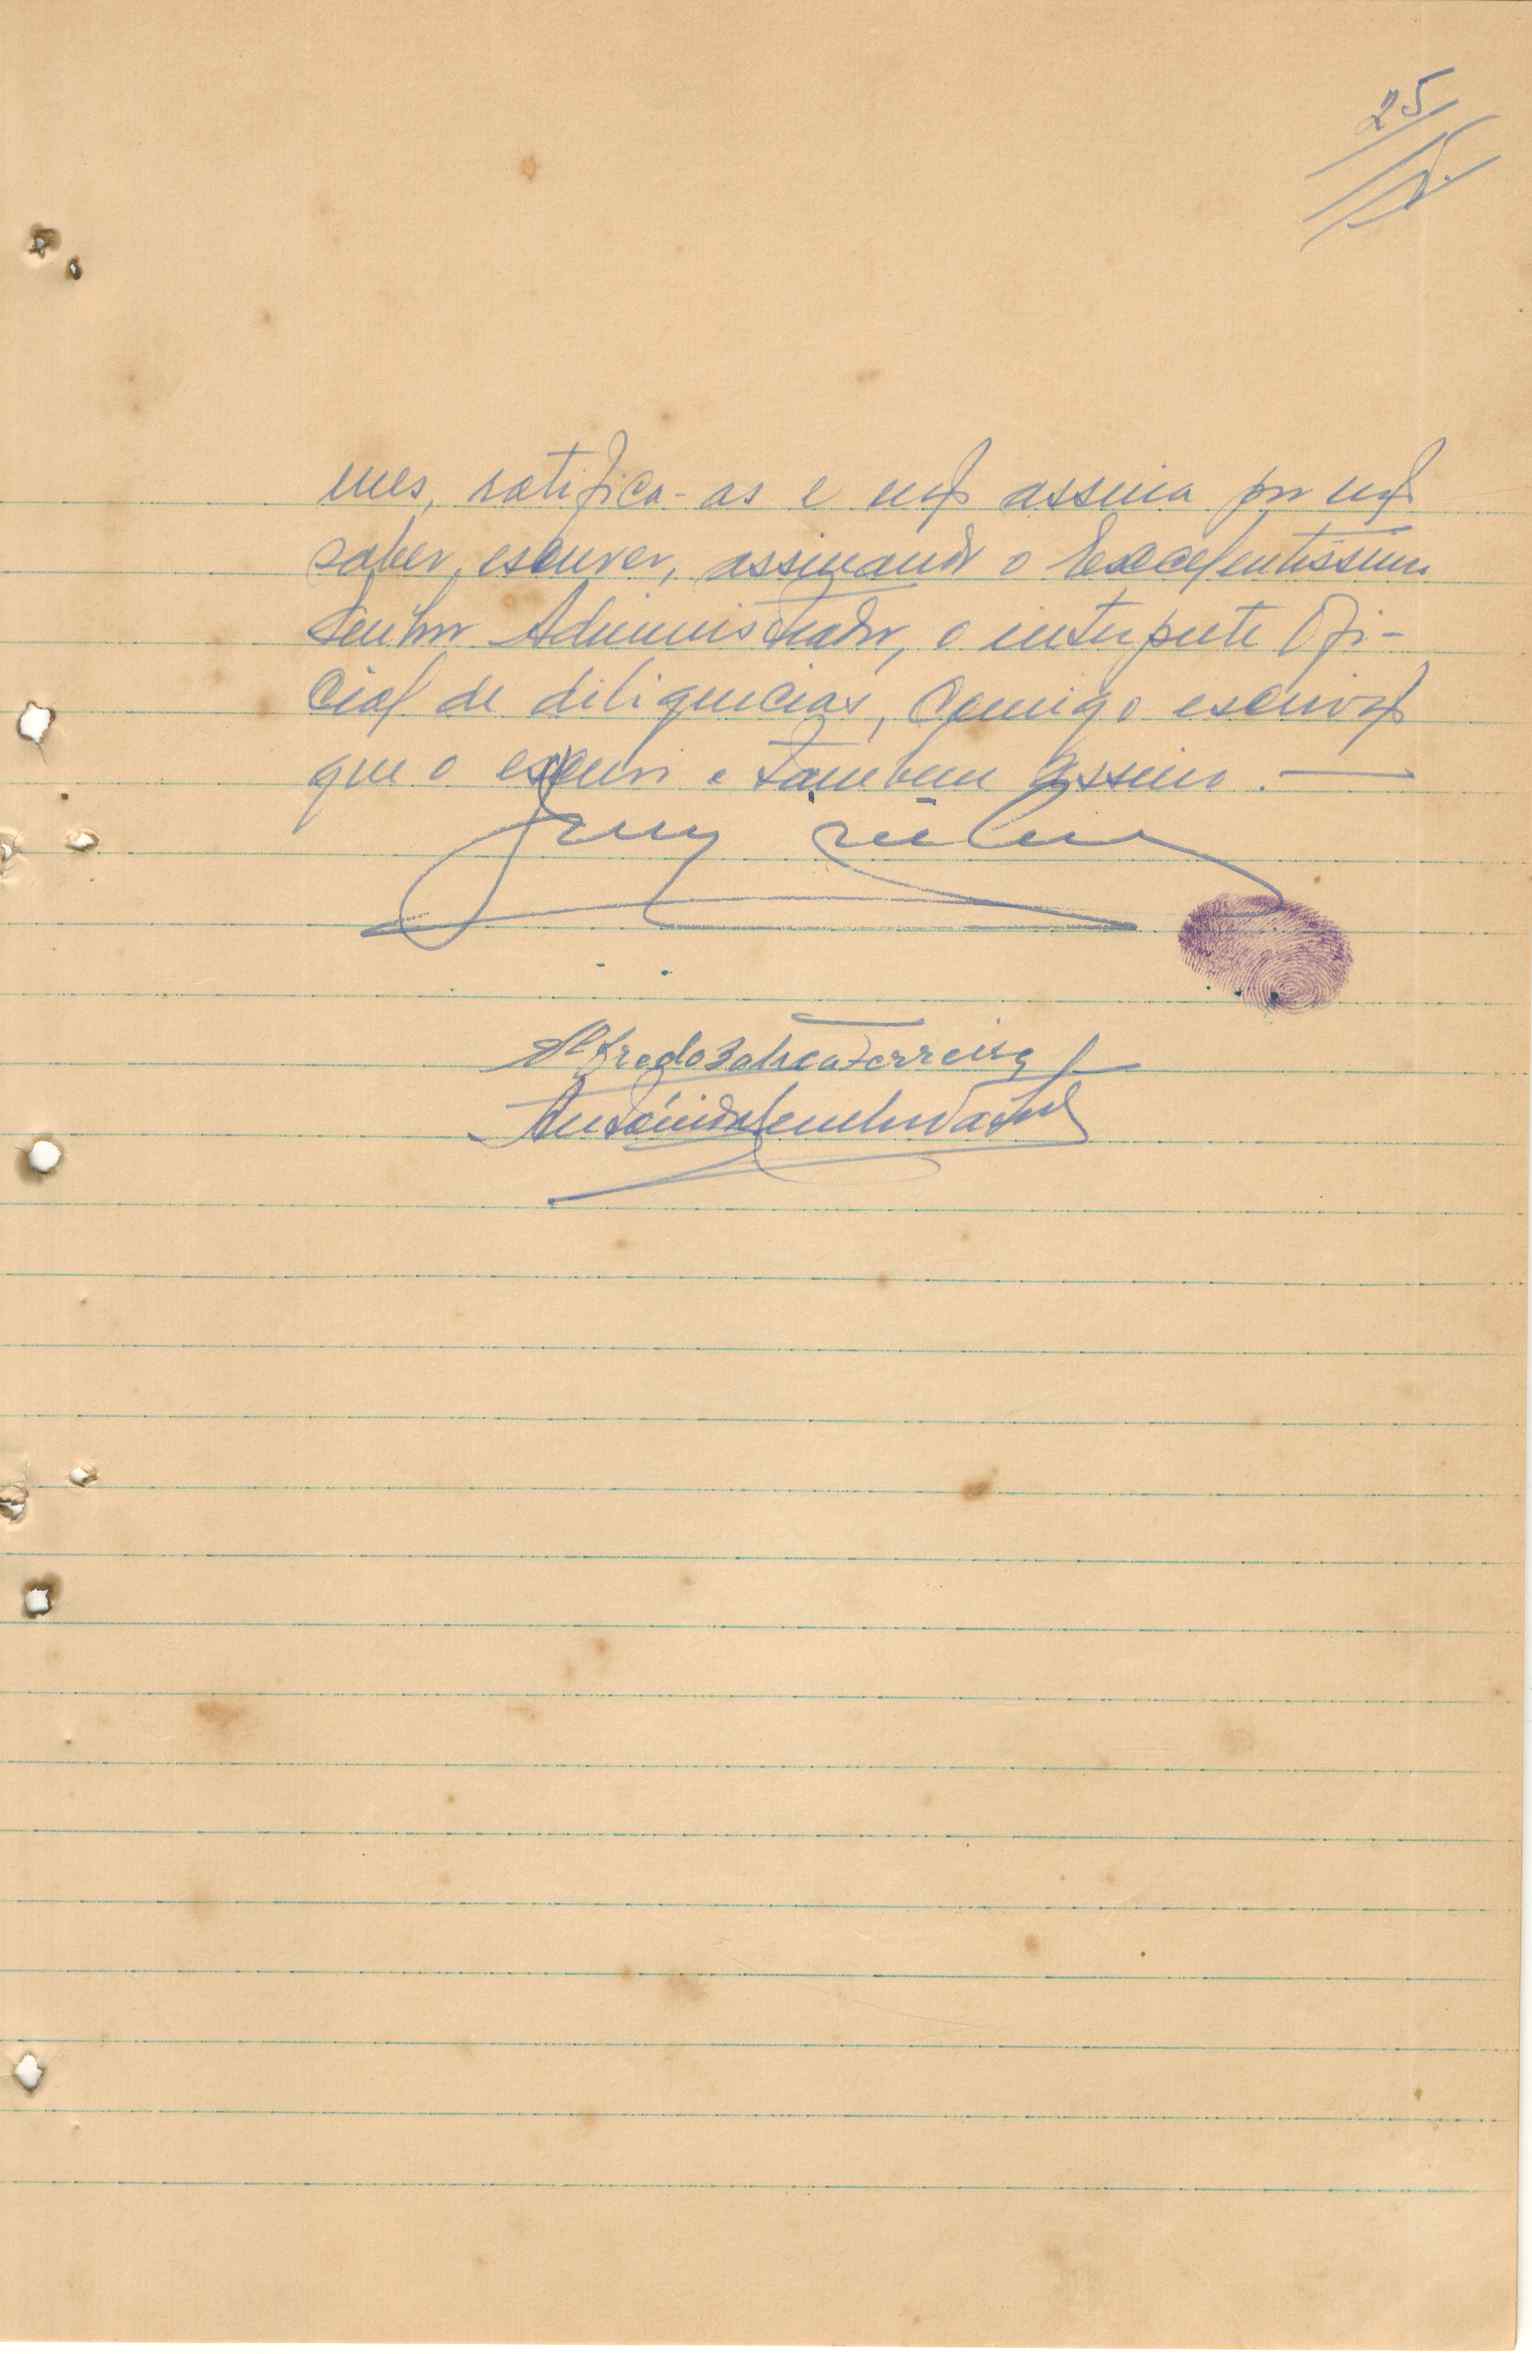 25
mes, ratifica-as e não assina por não
saber escrever, assinando o Excelentissimo
Senhor Administrador, o interprete Ofi-
cial de diligencias, comigo escrivão
que o escrevi e tambem assino.
Alfredo Ferreira
António